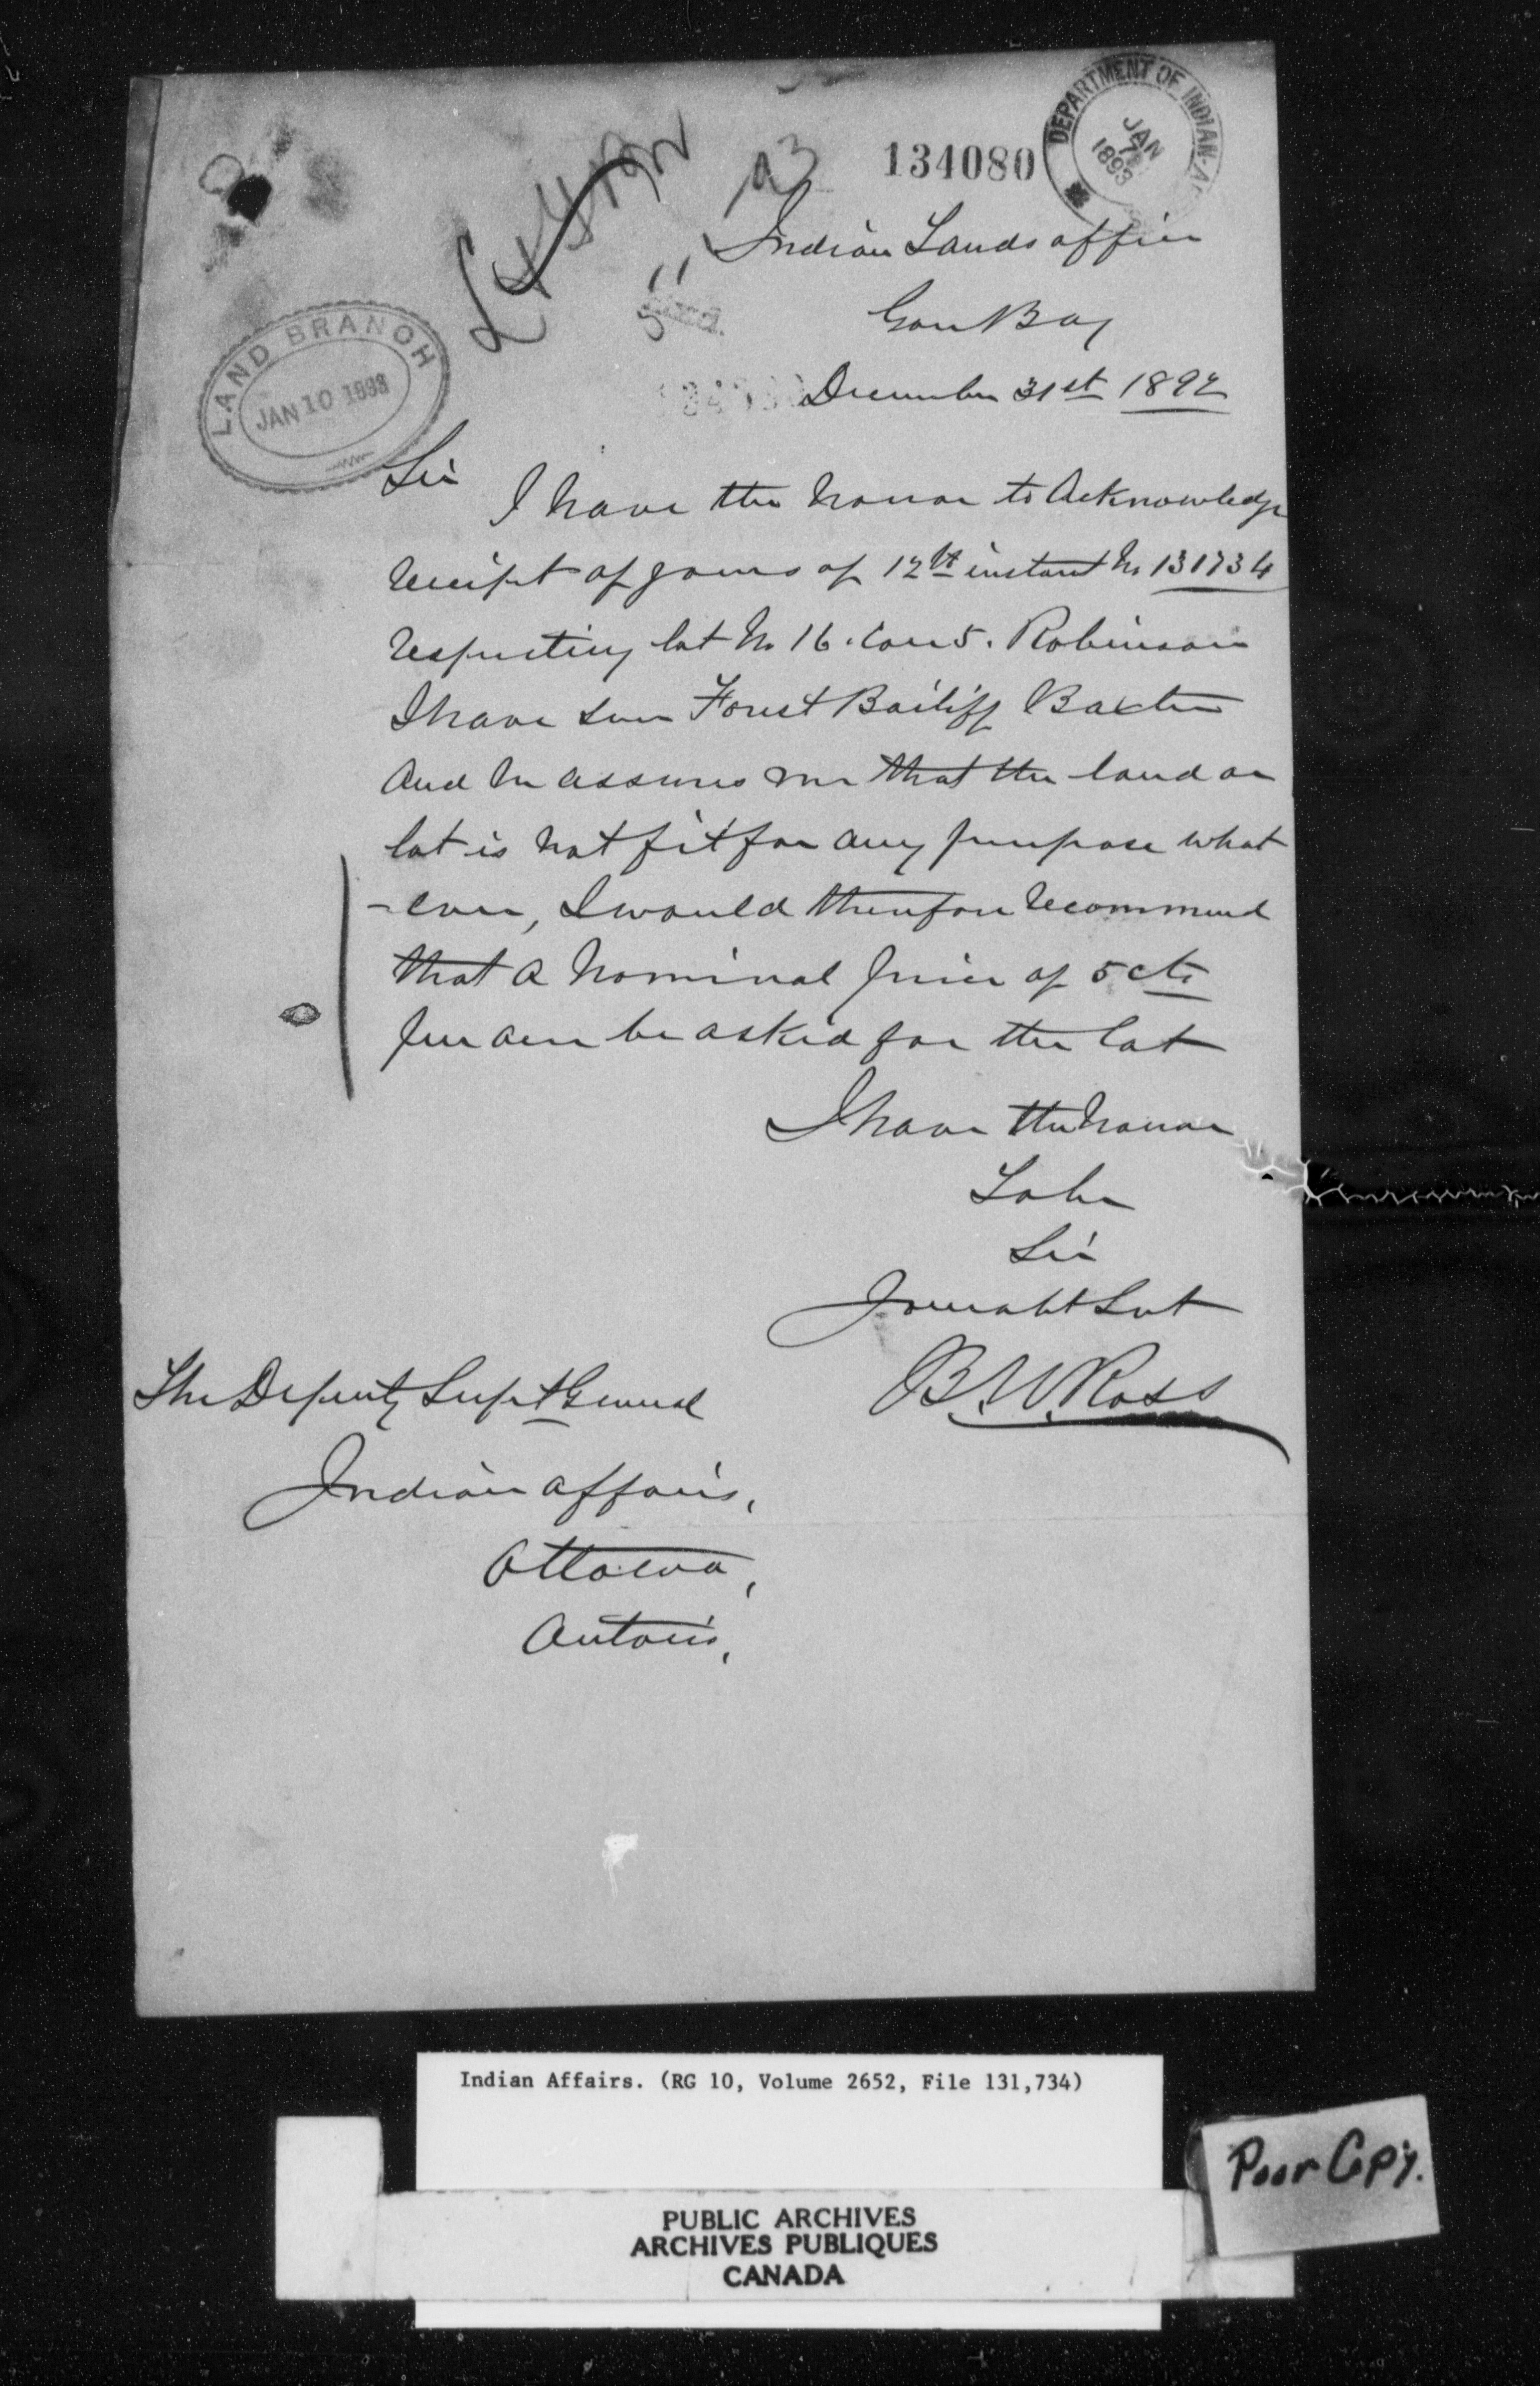 134080
DEPARTMENT OF INDIAN
JAN 7 1893
Indian Lands office
Gore Bay
December 31st 1892
LAND BRANCH
JAN 10 1893
Sir
I have the honor to Acknowledge
receipt of yours of 12th instant No 131734
respecting lot No 16. Con 5. Robinson
I have seen Forest Bailiff Baxter
and he assures me that the land on
lot is not fit for any purpose what
-ever, I would therefore recommend
that a nominal price of 5 cts
per acre be asked for the lot
I have the honor
To be
Sir
Your obt Svt
B. W. Ross
The Deputy Supt General
Indian affairs,
Ottawa,
Ontario,
Indian Affairs. (RG 10, Volume 2652, File 131,734)
PUBLIC ARCHIVES
ARCHIVES PUBLIQUES
CANADA
Poor Copy.